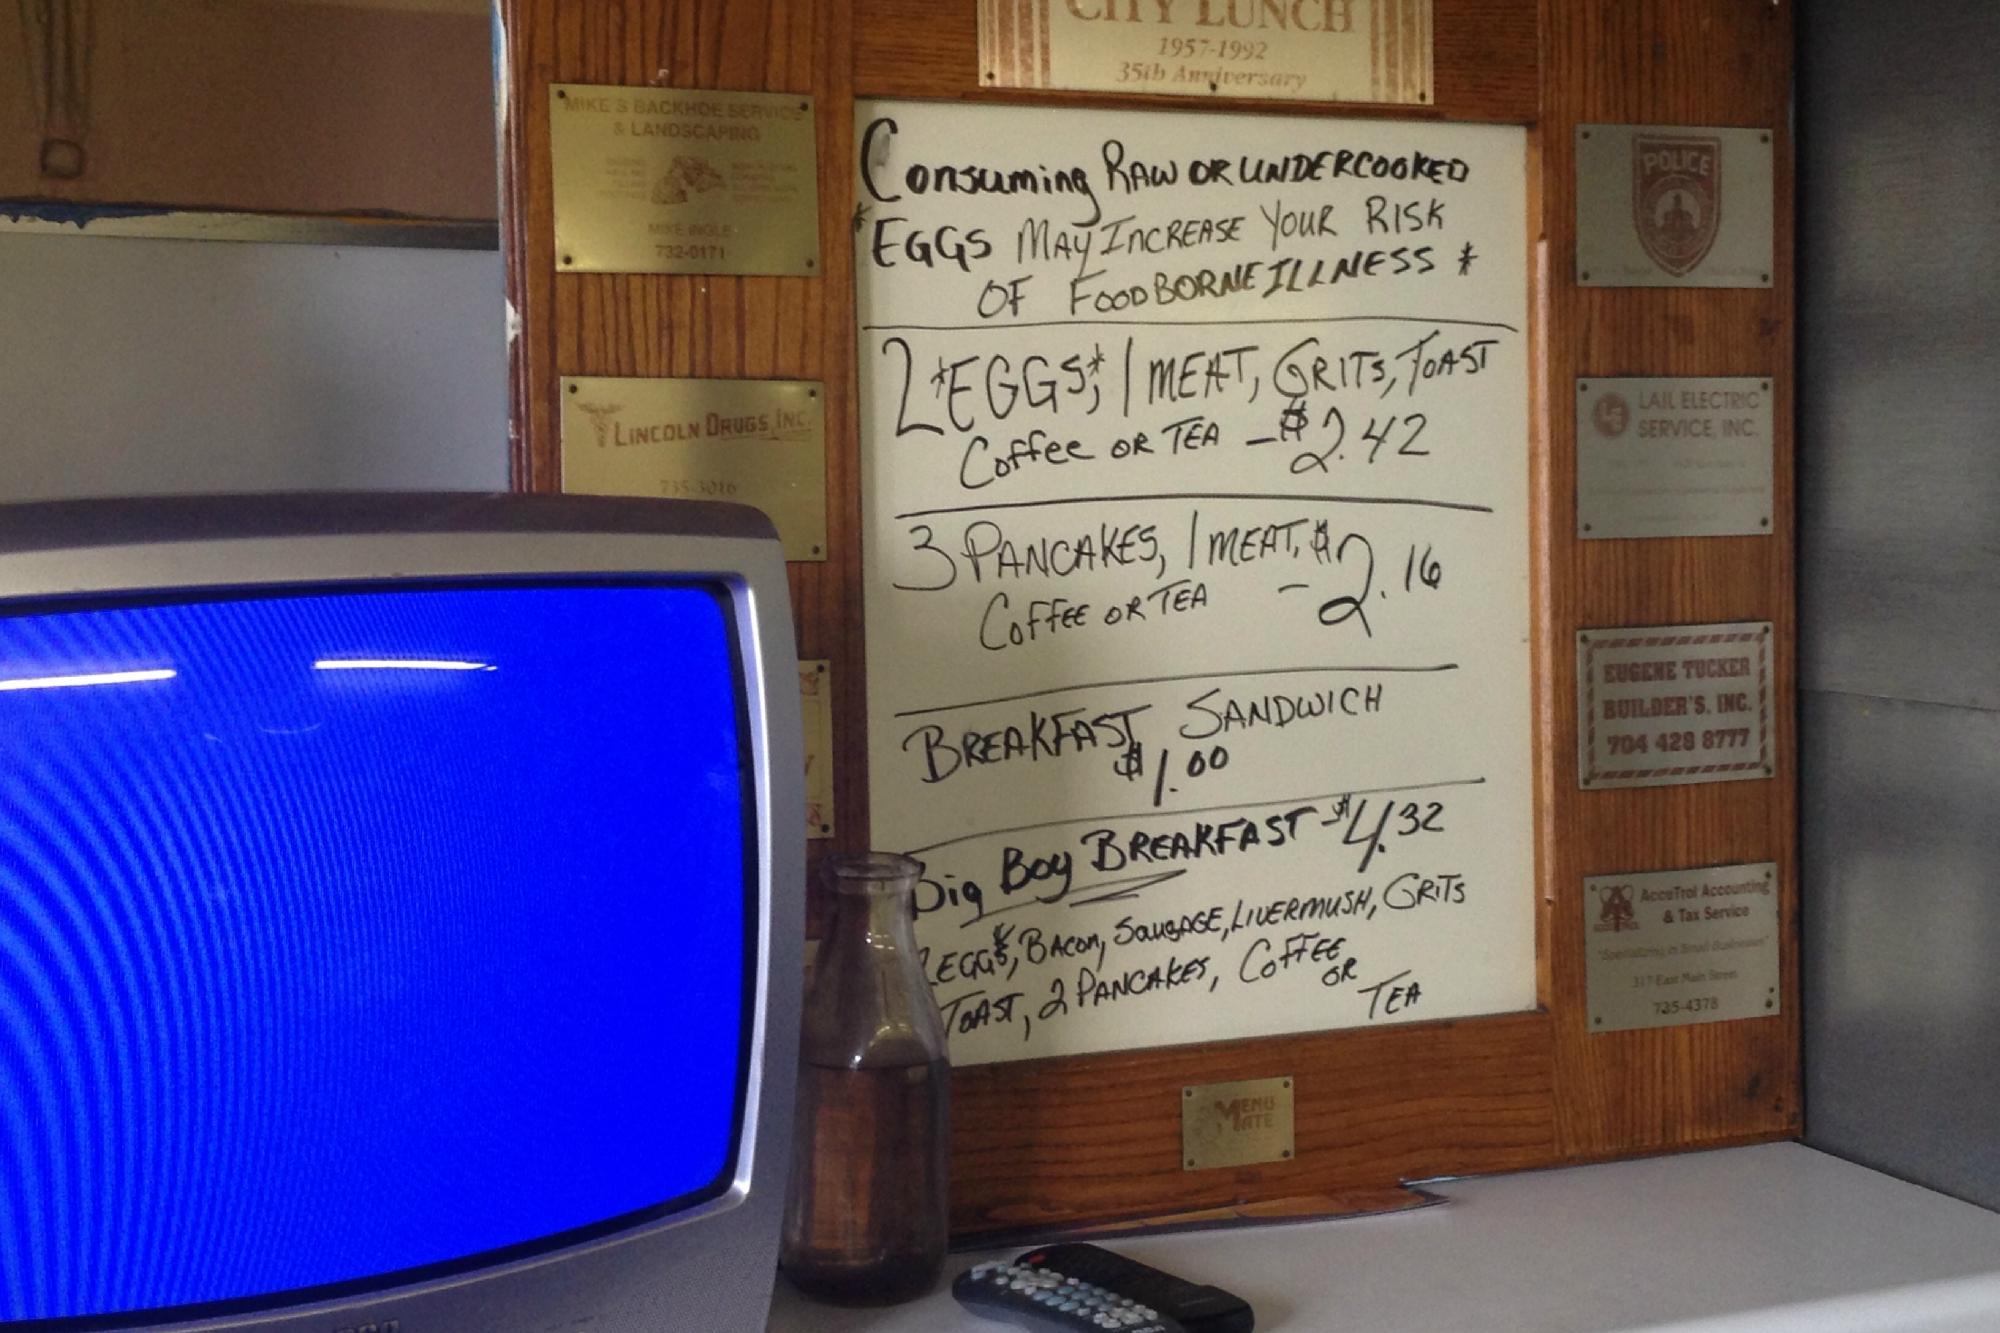 CITY LUNCH
1957-1992
35th Anniversary
MIKE'S BACKHOE SERVICE
& LANDSCAPING
MIKE INGLE
732-0171
LINCOLN DRUGS, INC.
735-3016
Consuming RAW OR UNDERCOOKED
*EGGS MAY INCREASE YOUR RISK
OF FOODBORNE ILLNESS *
2 *EGGS,* 1 MEAT, GRITS, TOAST
Coffee OR TEA - $2.42
3 PANCAKES, 1 MEAT, $2.16
COFFEE OR TEA -
BREAKFAST SANDWICH
$1.00
Big Boy BREAKFAST $4.32
2 EGGS*, BACON, SAUSAGE, LIVERMUSH, GRITS
TOAST, 2 PANCAKES, COFFEE
OR
TEA
MENU
MATE
POLICE
LAIL ELECTRIC
SERVICE, INC.
EUGENE TUCKER
BUILDER'S, INC.
704 428 8777
AccuTrol Accounting
& Tax Service
"Specializing in Small Businesses"
317 East Main Street
735-4378